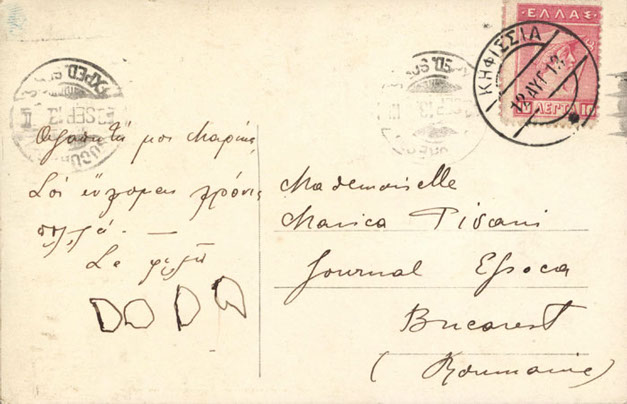 ΕΛΛΑΣ
ΛΕΠΤΑ 10
ΚΗΦΙΣΣΙΑ
12 ΑΥΓ 13
EXPED. SOS
SEP 13
SEP 13
Ἀγαπητή μοι Μαρίκα,
Σοὶ εὔχομαι χρόνια
πολλά. —
Σε φιλῶ
DODO
Mademoiselle
Marica Pisani
Journal Epoca
Bucarest
(Roumanie)